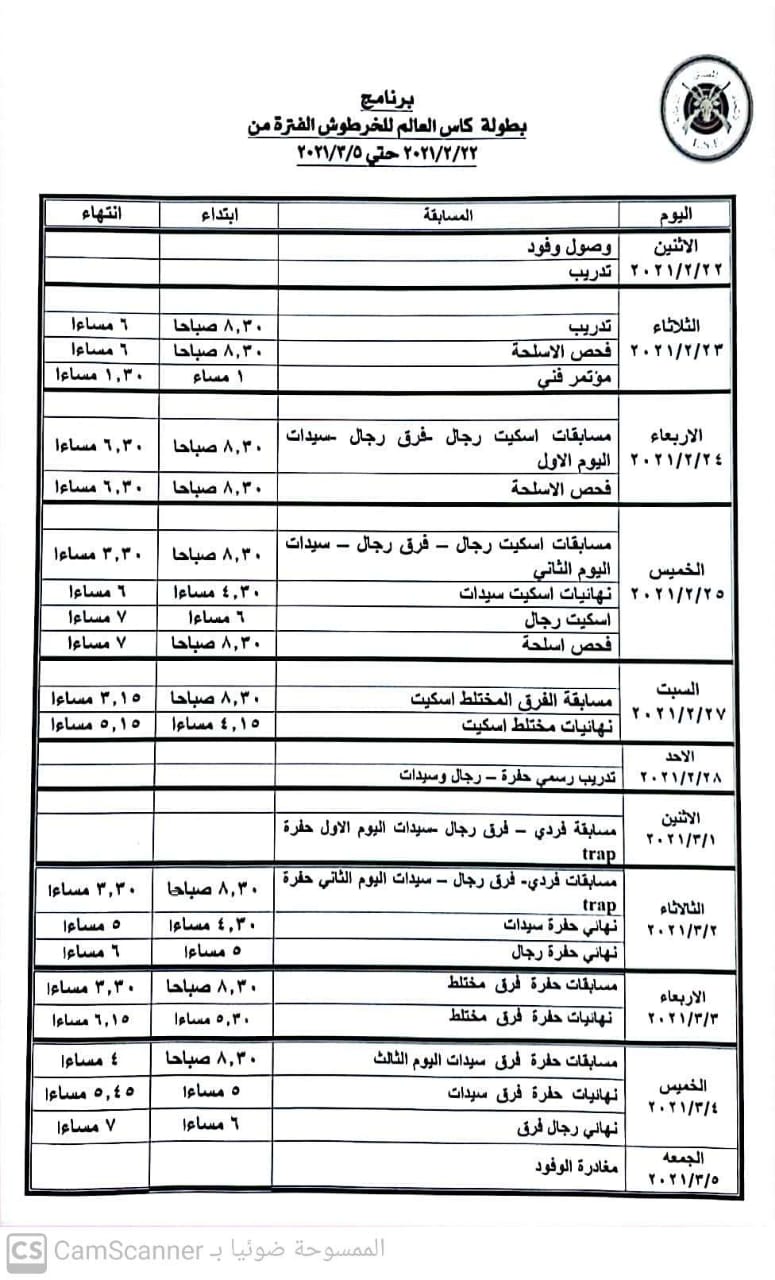 برنامج
بطولة كاس العالم للخرطوش الفترة من
٢٠٢١/٢/٢٢ حتي ٢٠٢١/٣/٥
I.S.F.
اليوم المسابقة ابتداء انتهاء
الاثنين وصول وفود
٢٠٢١/٢/٢٢ تدريب
الثلاثاء تدريب ٨,٣٠ صباحا ٦ مساءا
٢٠٢١/٢/٢٣ فحص الاسلحة ٨,٣٠ صباحا ٦ مساءا
مؤتمر فني ١ مساء ١,٣٠ مساءا
الاربعاء مسابقات اسكيت رجال -فرق رجال -سيدات ٨,٣٠ صباحا ٦,٣٠ مساءا
٢٠٢١/٢/٢٤ اليوم الاول
فحص الاسلحة ٨,٣٠ صباحا ٦,٣٠ مساءا
مسابقات اسكيت رجال – فرق رجال – سيدات ٨,٣٠ صباحا ٣,٣٠ مساءا
الخميس اليوم الثاني
٢٠٢١/٢/٢٥ نهائيات اسكيت سيدات ٤,٣٠ مساءا ٦ مساءا
اسكيت رجال ٦ مساءا ٧ مساءا
فحص اسلحة ٨,٣٠ صباحا ٧ مساءا
السبت مسابقة الفرق المختلط اسكيت ٨,٣٠ صباحا ٣,١٥ مساءا
٢٠٢١/٢/٢٧ نهائيات مختلط اسكيت ٤,١٥ مساءا ٥,١٥ مساءا
الاحد
٢٠٢١/٢/٢٨ تدريب رسمي حفرة – رجال وسيدات
الاثنين مسابقة فردي – فرق رجال -سيدات اليوم الاول حفرة
٢٠٢١/٣/١ trap
مسابقات فردي- فرق رجال – سيدات اليوم الثاني حفرة ٨,٣٠ صباحا ٣,٣٠ مساءا
الثالاثاء trap
٢٠٢١/٣/٢ نهائي حفرة سيدات ٤,٣٠ مساءا ٥ مساءا
نهائي حفرة رجال ٥ مساءا ٦ مساءا
الاربعاء مسابقات حفرة فرق مختلط ٨,٣٠ صباحا ٣,٣٠ مساءا
٢٠٢١/٣/٣ نهائيات حفرة فرق مختلط ٥,٣٠ مساءا ٦,١٥ مساءا
مسابقات حفرة فرق سيدات اليوم الثالث ٨,٣٠ صباحا ٤ مساءا
الخميس نهائيات حفرة فرق سيدات ٥ مساءا ٥,٤٥ مساءا
٢٠٢١/٣/٤ نهائي رجال فرق ٦ مساءا ٧ مساءا
الجمعه مغادرة الوفود
٢٠٢١/٣/٥
CS CamScanner الممسوحة ضوئيا بـ